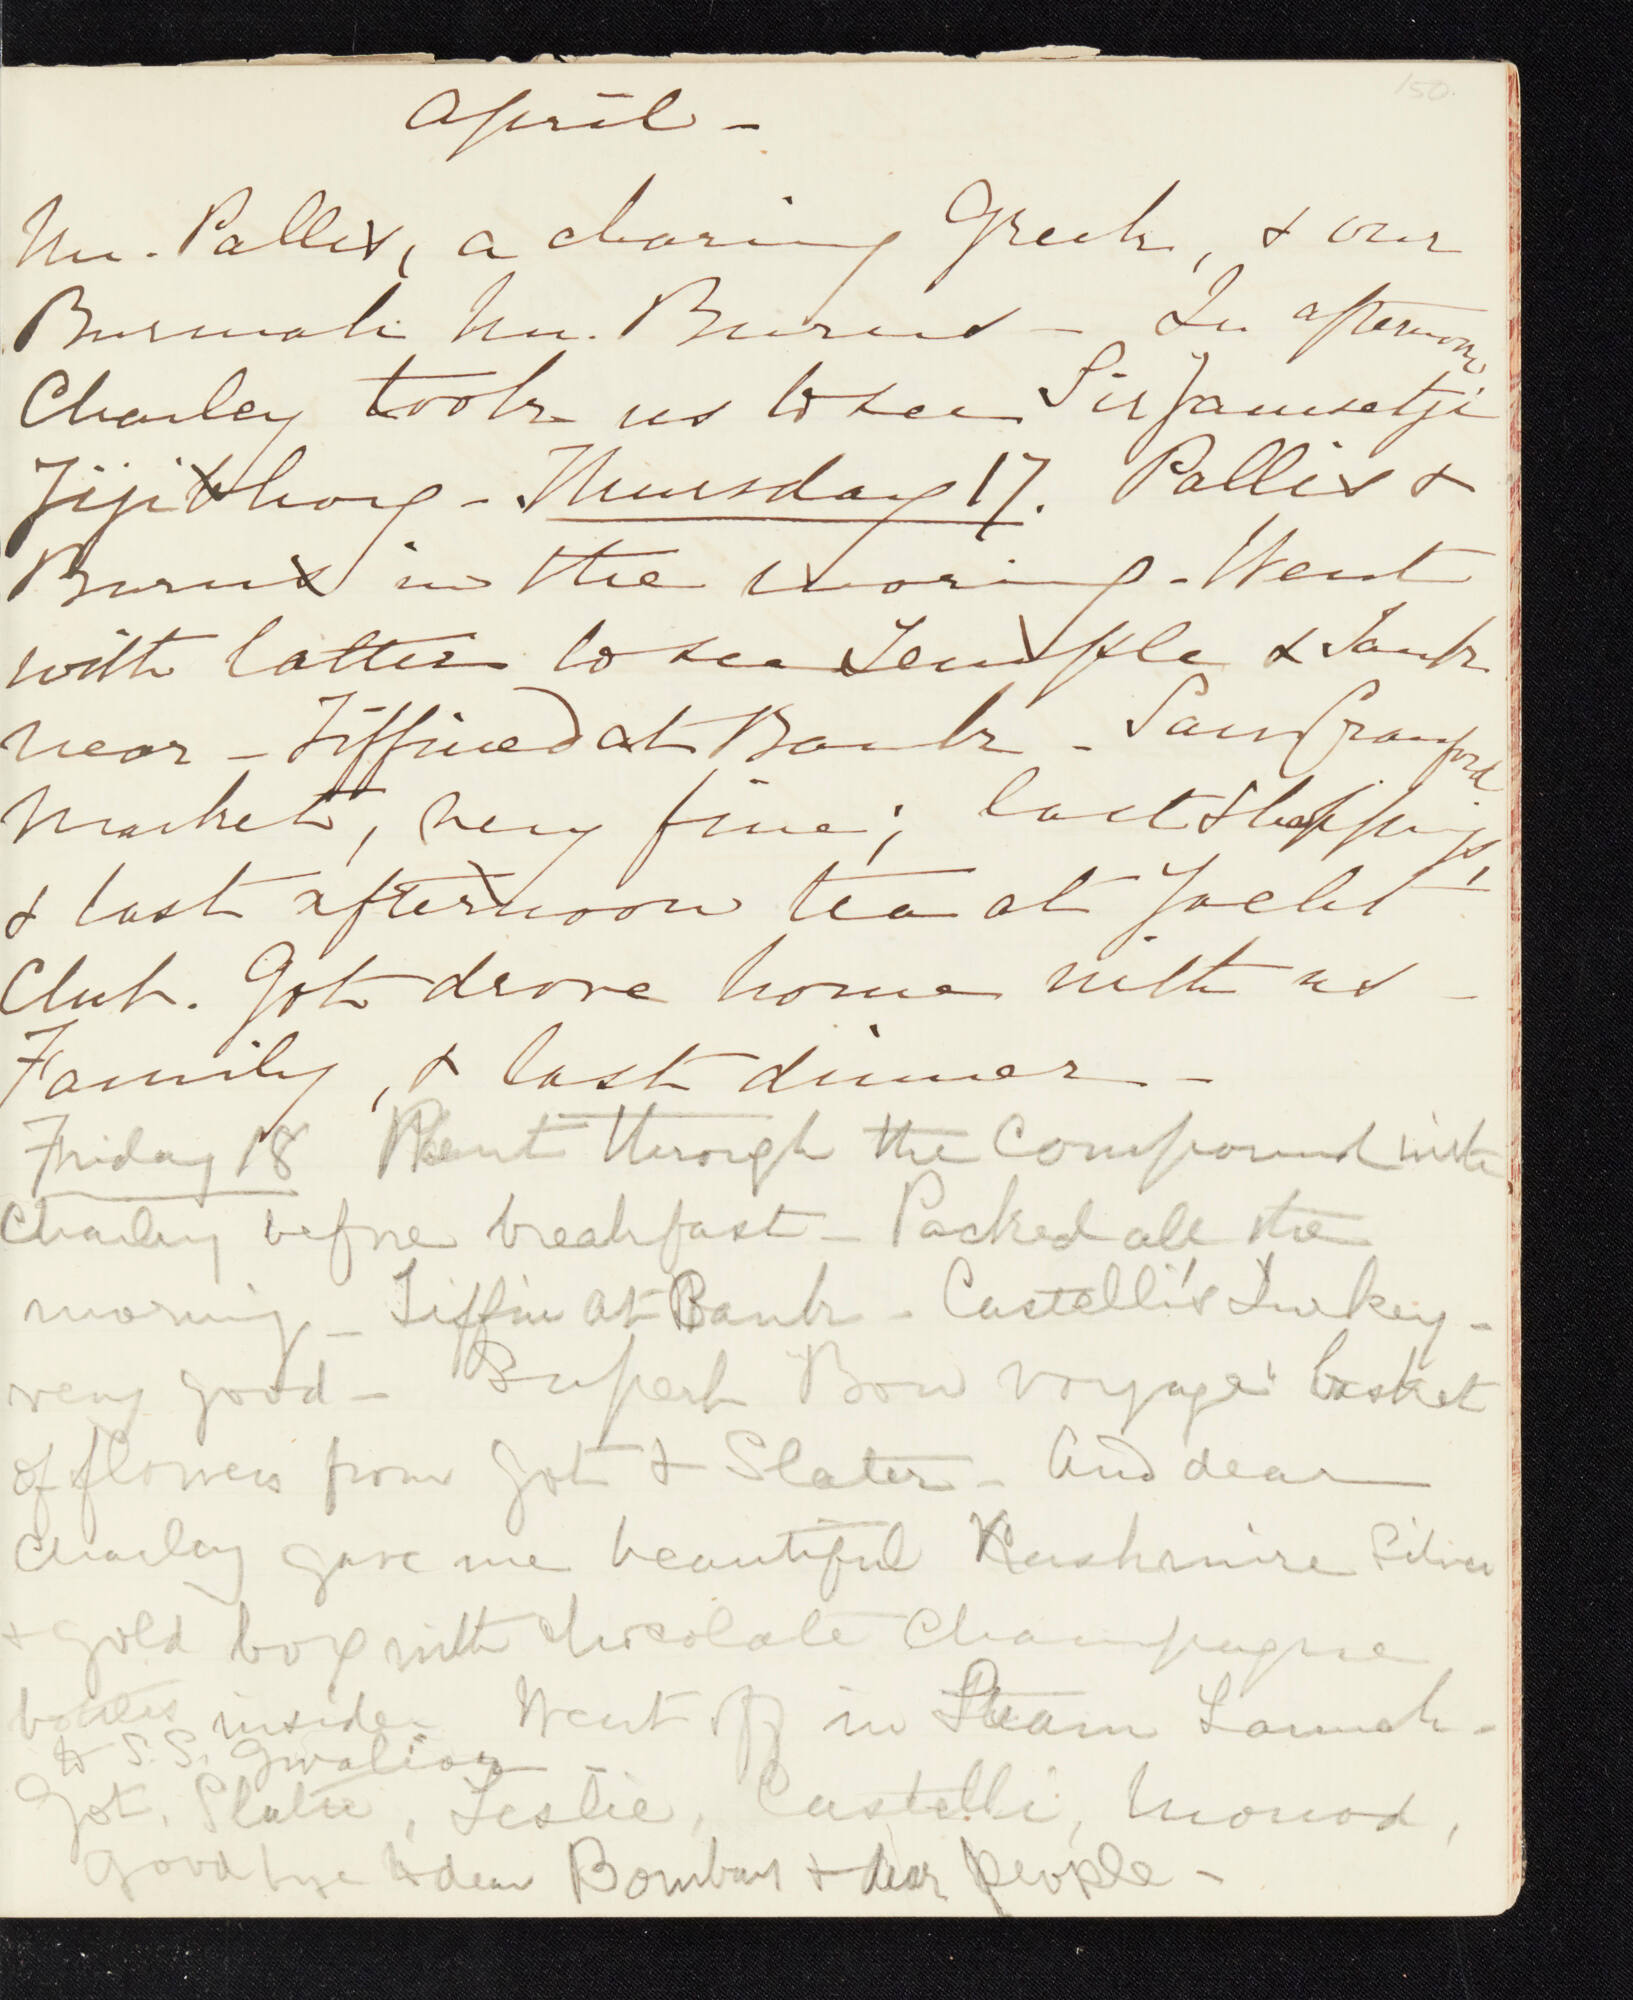 150.
April -
Mr. Pallis, a charing Greek, & our
Burmah Mr. Burns - In afternoon
Charley took us to see Sir Jamsetji
Jijibhoy - Thursday 17. Pallis &
Burns in the moring - Went
with latter to see Temple & Tank
near - Tiffined at Bank - Saw Crauford
Market, very fine; last shoppings,
& last afternoon tea at Yacht
Club. Got drove home with us -
Family, & last dinner -
Friday 18 Went through the Compound with
Charley before breakfast - Packed all the
morning - Tiffin at Bank - Castelli's Turkey -
very good - Superb Bon voyage basket
of flowers from Got & Slater - And dear
Charley gave me beautiful Kashmire Silver
& gold box with chocolate Champagne
bottles inside - Went off in Steam Launch -
to S.S. Gwalior -
Got, Slater, Leslie, Castelli, Monod,
Good bye to dear Bombay & dear people -